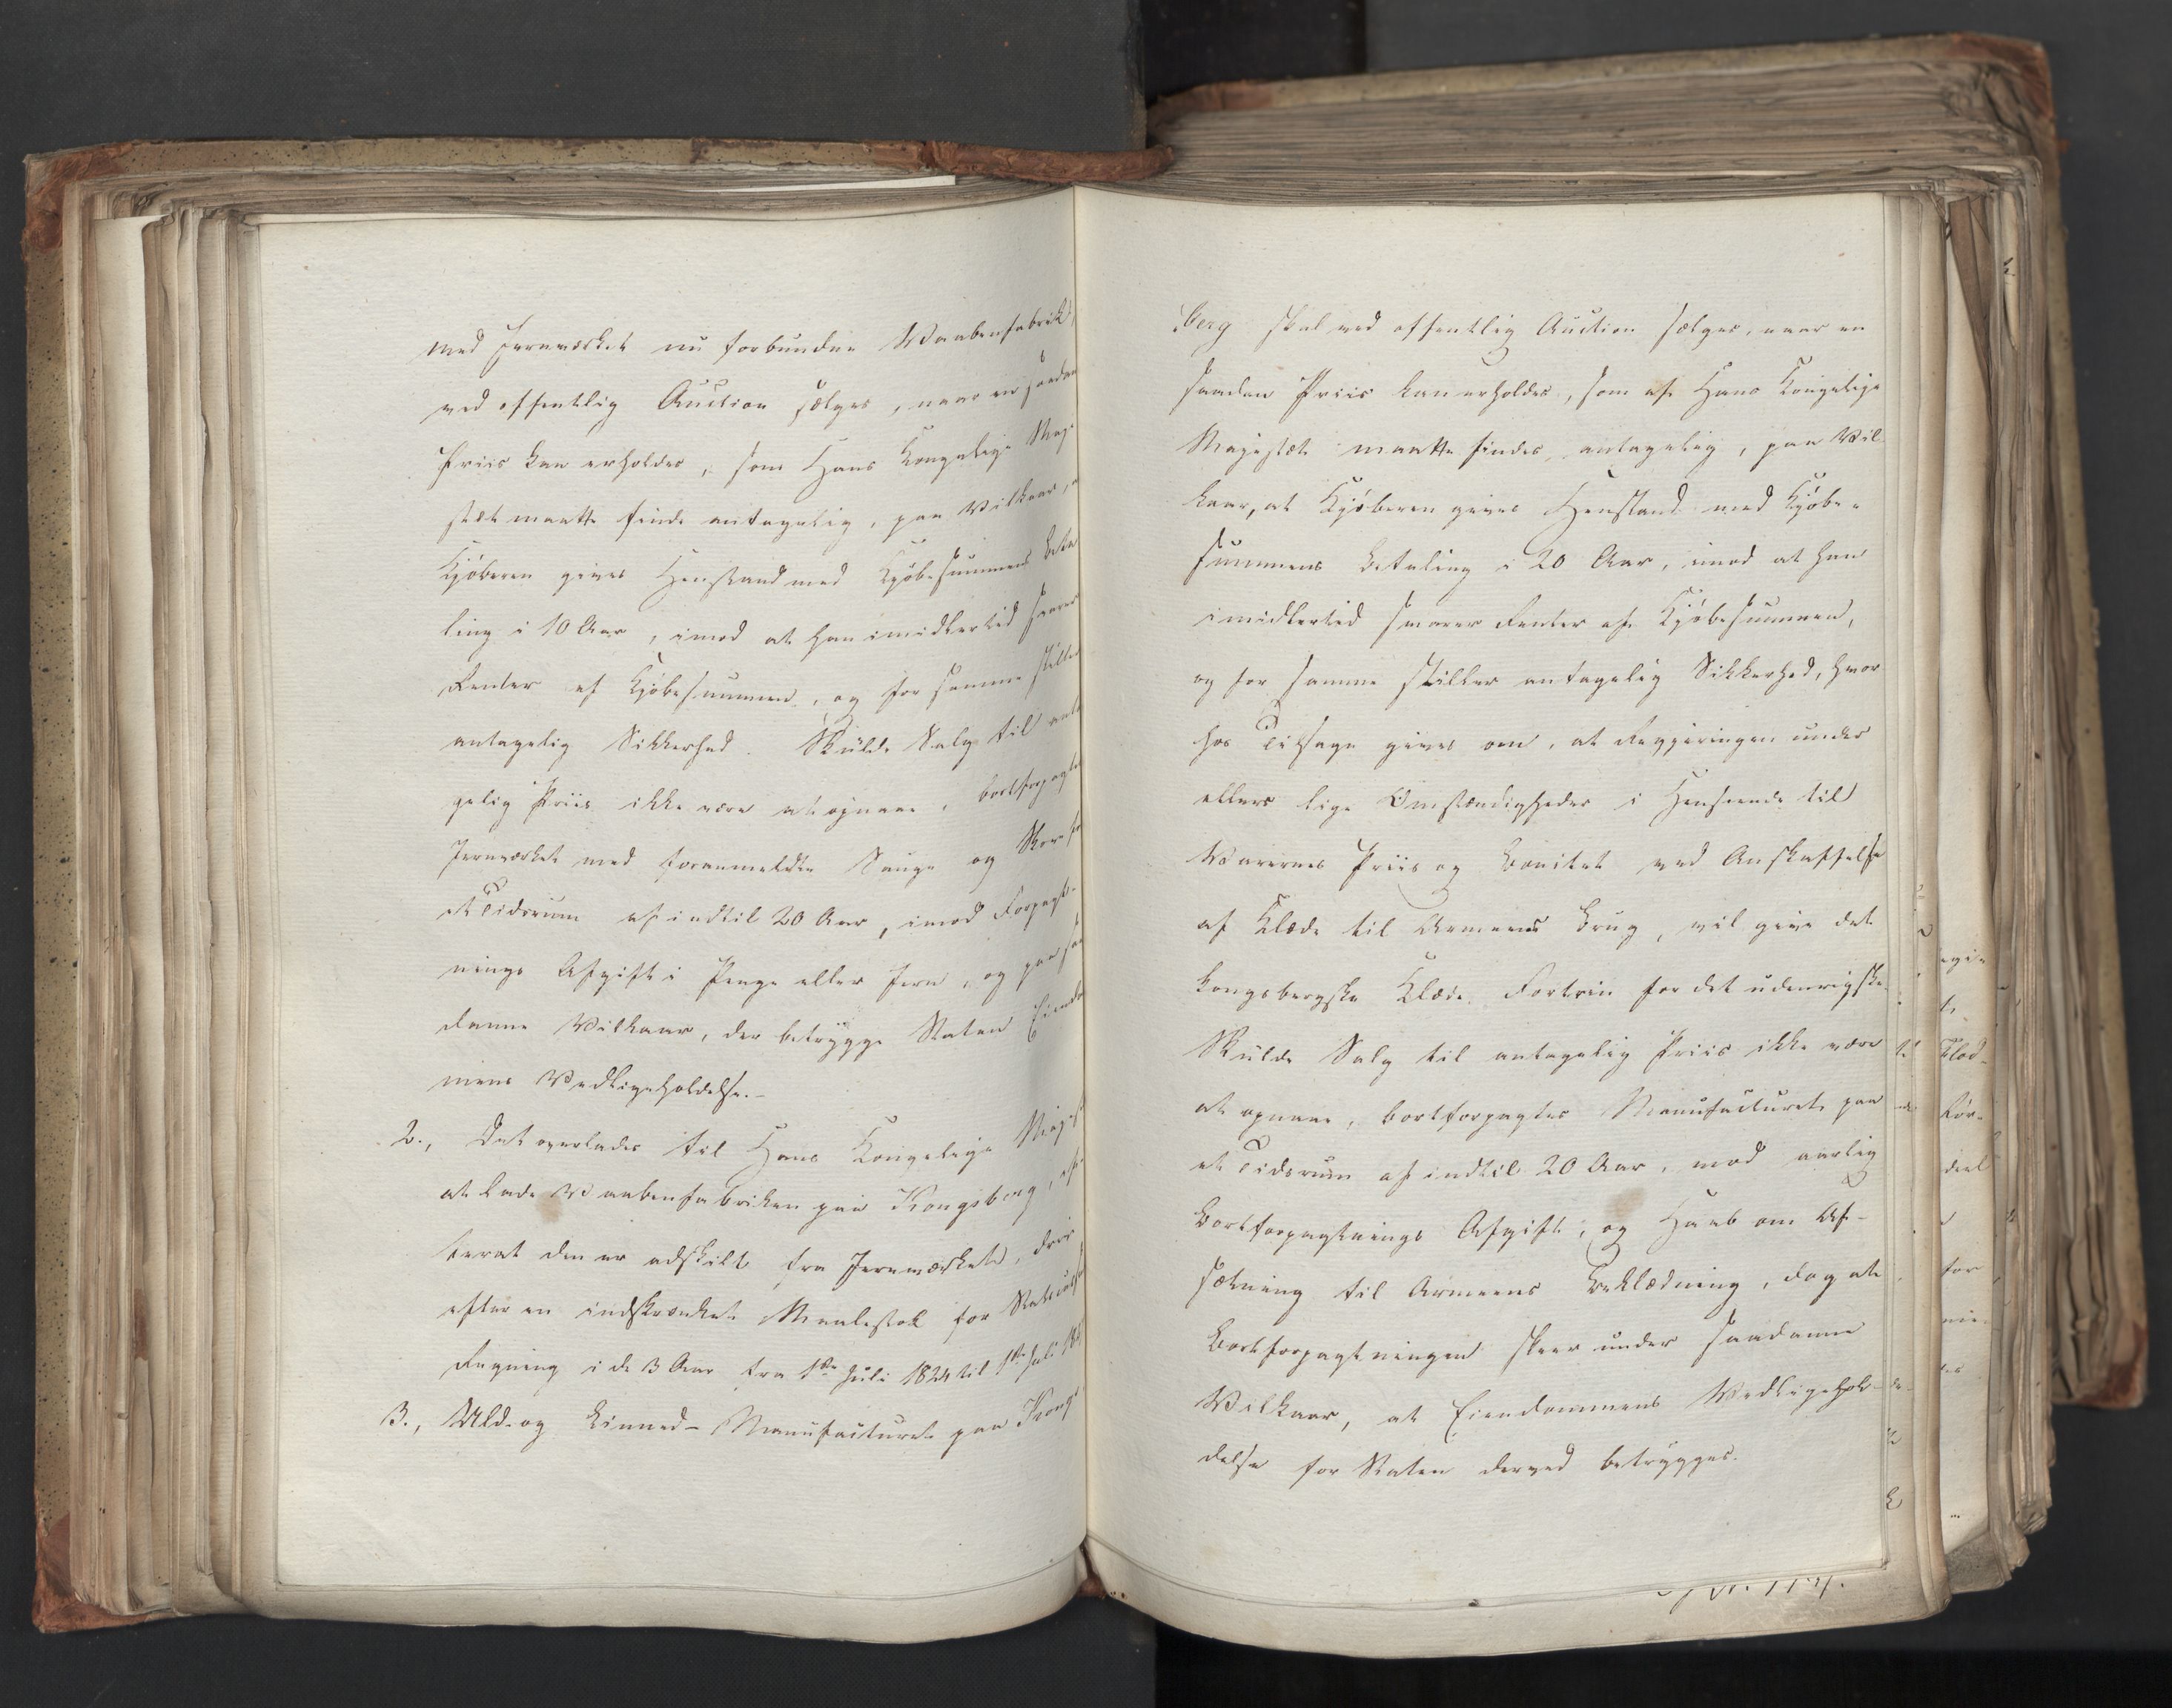 med Jernværket nu forbundne Vaabenfabrik,
ved offentlig Auction sælges, naar en saadan
Priis kan erholdes, som Hans Kongelige Maj-
stæt maatte finde antagelig, paa Vilkaar, a
Kjöberen gives Henstand med Kjöbesummens beta
ling i 10 Aar, imod at han imidlertid svarer
Renter af Kjöbesummen, og for samme stiller
antagelig Sikkerhed. Skulde Salg til anta
gelig Priis ikke være at opnaae, bortforpagtes
Jernværket med foranmeldte Sauge og Skov for
et Tidsrum af indtil 20 Aar, imod Forpagt-
nings Afgift i Penge eller Jern, og paa saa
danne Vilkaar, der betrygge Staten Eiendom
mens Vedligeholdelse.-
2., Det overlades til Hans Kongelige Majest
at lade Vaabenfabriken paa Kongsberg, ef-
terat den er adskilt fra Jernværket, drive
efter en indskrænket Maalestok for Statens
Regning i de 3 Aar fra 1ste Juli 1824 til 1ste Juli 18
3., Uld- og Linned-Manufacturet paa Kongs
berg skal ved offentlig Auction sælges, naar en
saadan Priis kan erholdes, som af Hans Kongelige
Majestæt maatte findes antagelig, paa Vil-
kaar, at Kjöberen gives Henstand med Kjöbe-
summens betaling i 20 Aar, imod at han
imidlertid svarer Renter af Kjöbesummen,
og for samme stiller antagelig Sikkerhed, hvor
hos Tilsagn gives om, at Regjeringen under
ellers lige Omstændigheder i Henseende til
Varernes Priis og Bonitet ved Anskaffelse
af Klæde til Armeens brug, vil give det
kongsbergske Klæde Fortrin for det udenrigske.
Skulde Salg til antagelig Priis ikke være
at opnaae, bortforpagtes Manufacturet paa
et Tidsrum af indtil 20 Aar, mod aarlig
Bortforpagtnings Afgift, og Haab om Af-
sætning til Armeens Beklædning, dog at
Bortforpagtningen skeer under saadanne
Vilkaar, at Eiendommens Vedligehol-
delse for Staten derved betrygges.